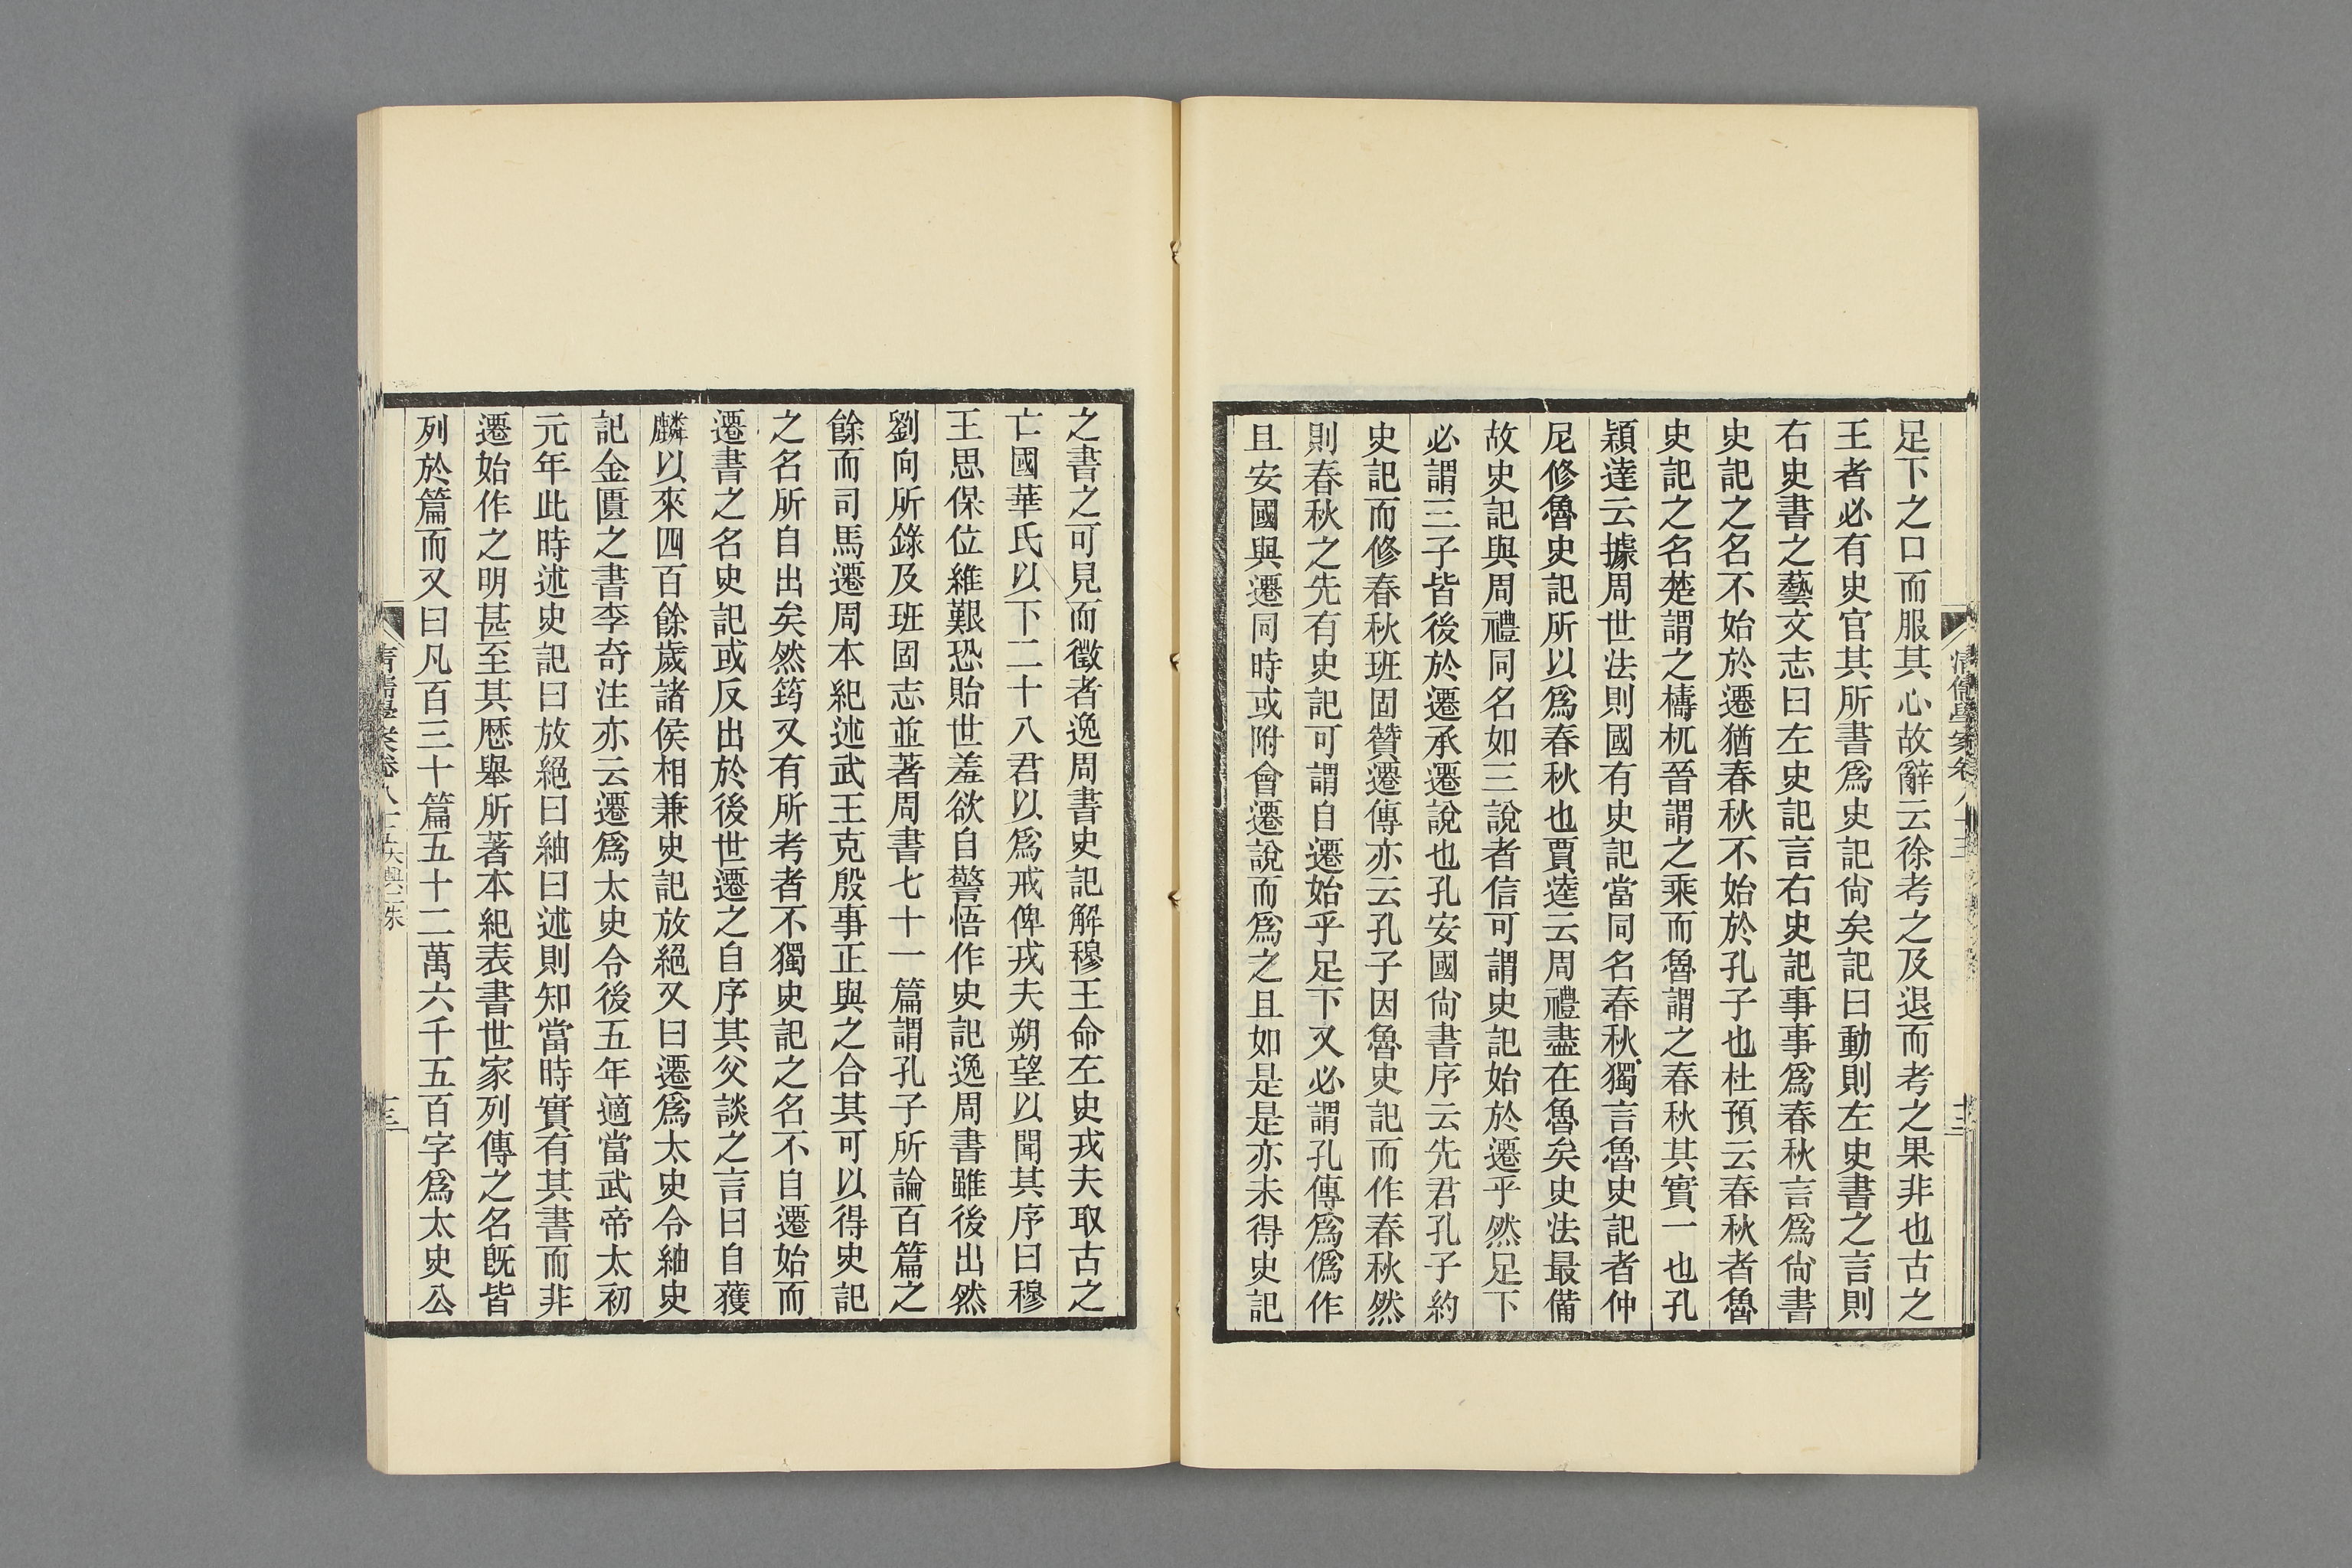 足下之口而服其心故辭云徐考之及退而考之果非也古之
王者必有史官其所書爲史記尙矣記曰動則左史書之言則
右史書之藝文志曰左史記言右史記事事爲春秋言爲尙書
史記之名不始於遷猶春秋不始於孔子也杜預云春秋者魯
史記之名楚謂之檮杌晉謂之乘而魯謂之春秋其實一也孔
穎達云據周世法則國有史記當同名春秋獨言魯史記者仲
尼修魯史記所以爲春秋也賈逵云周禮盡在魯矣史法最備
故史記與周禮同名如三說者信可謂史記始於遷乎然足下
必謂三子皆後於遷承遷說也孔安國尙書序云先君孔子約
史記而修春秋班固贊遷傳亦云孔子因魯史記而作春秋然
則春秋之先有史記可謂自遷始乎足下又必謂孔傳爲僞作
且安國與遷同時或附會遷說而爲之且如是是亦未得史記
之書之可見而徵者逸周書史記解穆王命左史戎夫取古之
亡國華氏以下二十八君以爲戒俾戎夫朔望以聞其序曰穆
王思保位維艱恐貽世羞欲自警悟作史記逸周書雖後出然
劉向所錄及班固志並著周書七十一篇謂孔子所論百篇之
餘而司馬遷周本紀述武王克殷事正與之合其可以得史記
之名所自出矣然筠又有所考者不獨史記之名不自遷始而
遷書之名史記或反出於後世遷之自序其父談之言曰自獲
麟以來四百餘歲諸侯相兼史記放絕又曰遷爲太史令紬史
記金匱之書李奇注亦云遷爲太史令後五年適當武帝太初
元年此時述史記曰放絕曰紬曰述則知當時實有其書而非
遷始作之明甚至其歷舉所著本紀表書世家列傳之名旣皆
列於篇而又曰凡百三十篇五十二萬六千五百字爲太史公